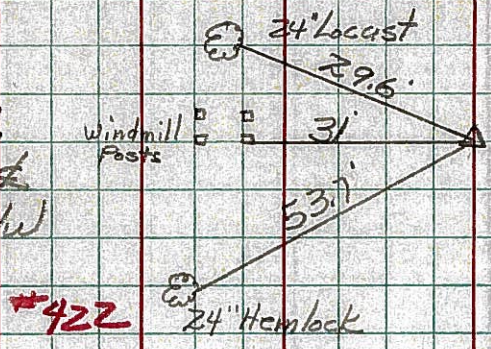 24" Locust
29.6'
windmill
Posts
31'
53.7'
#422
24" Hemlock